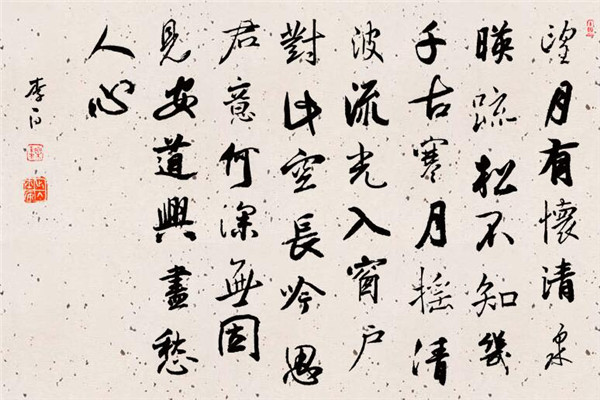 望月有懷清泉
暎疏松不知幾
千古寒月搖清
波流光入窗户
對此空長吟思
君意何深無因
見安道興盡愁
人心
李白